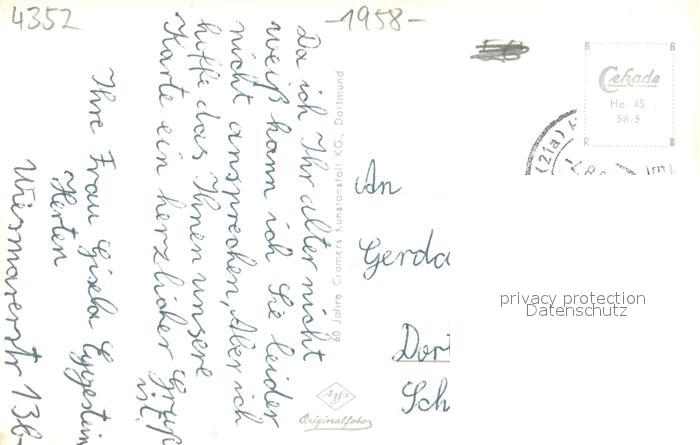 4352
-1958-
Da ich Ihr alter nicht
weiß kann ich Sie leider
nicht ansprechen, Aber ich
hoffe das Ihnen unsere
Karte ein herzlicher Gruß
ist.
Ihre Frau Gisela
Herten
136
60 Jahre Cramers Kunstanstalt KG., Dortmund
Agfa
Originalfoto
An
Gerda
Dort
Sch
B B
Cekade
He 45
58/5
R B
(21a)
privacy protection
Datenschutz